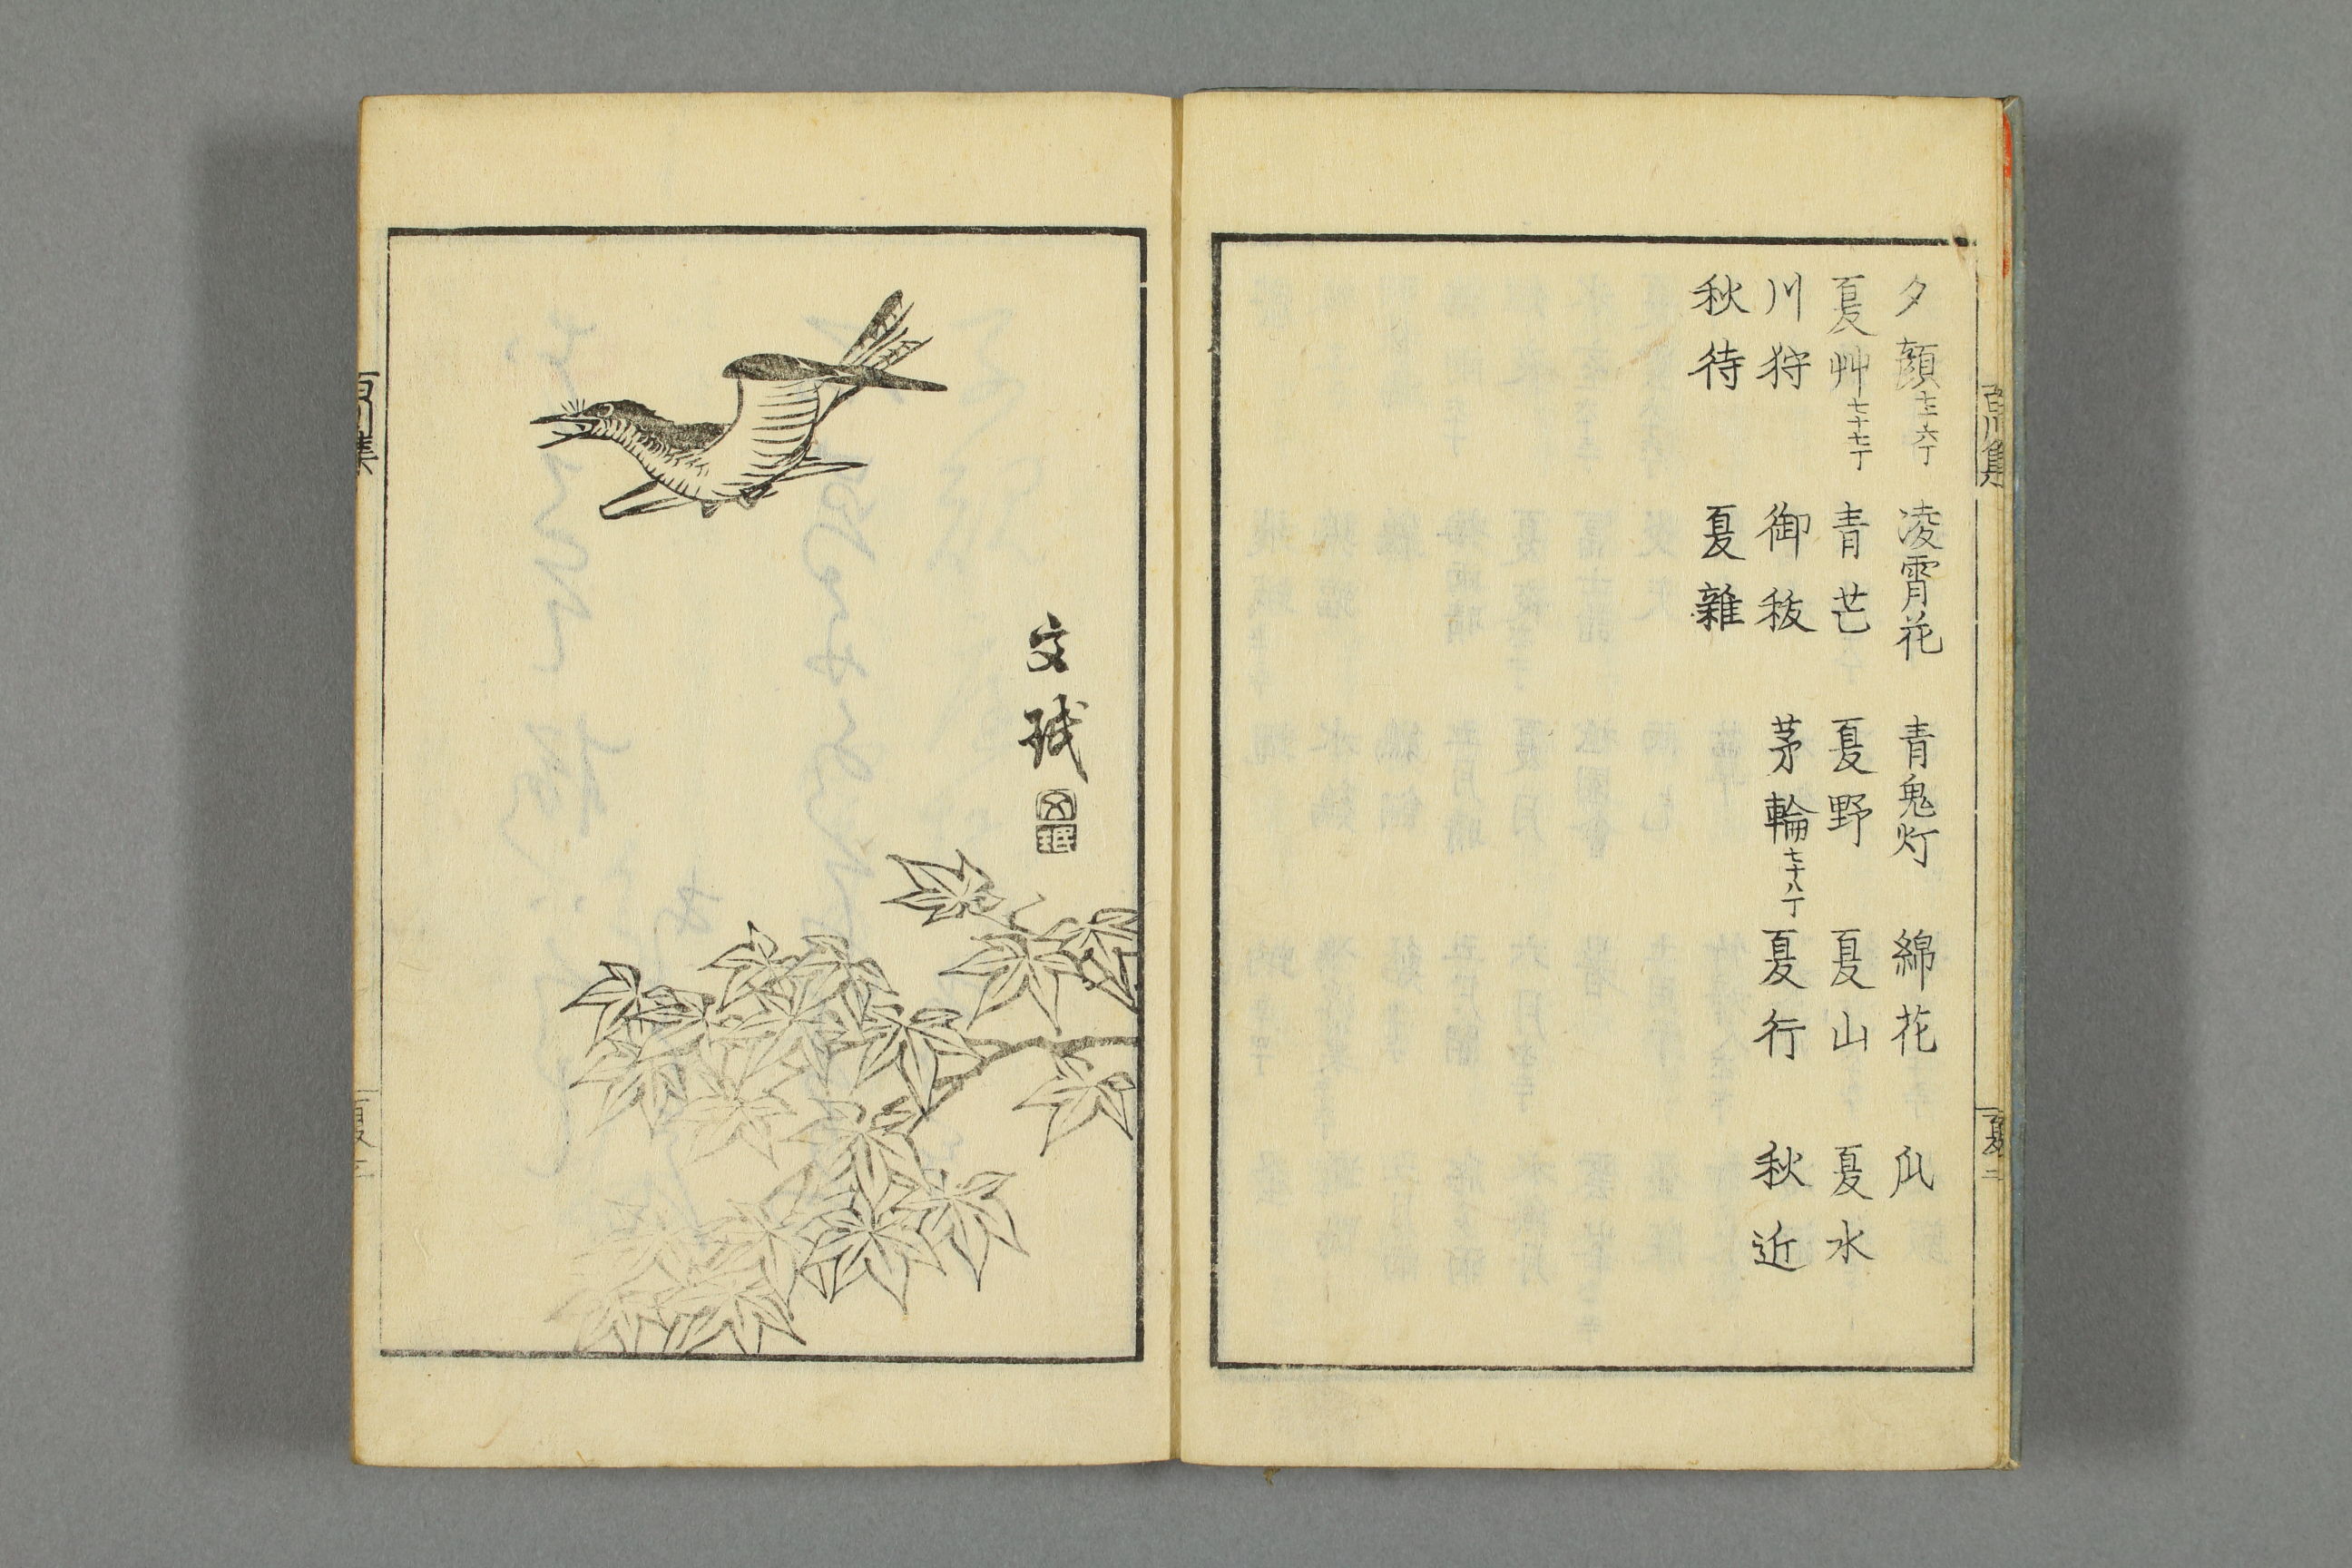 夕顔七十六丁 凌霄花 青鬼灯 綿花 瓜
夏艸七十七丁 青芒 夏野 夏山 夏水
川狩 御秡 茅輪七十八丁 夏行 秋近
秋待 夏雜
百川集 夏 二
文